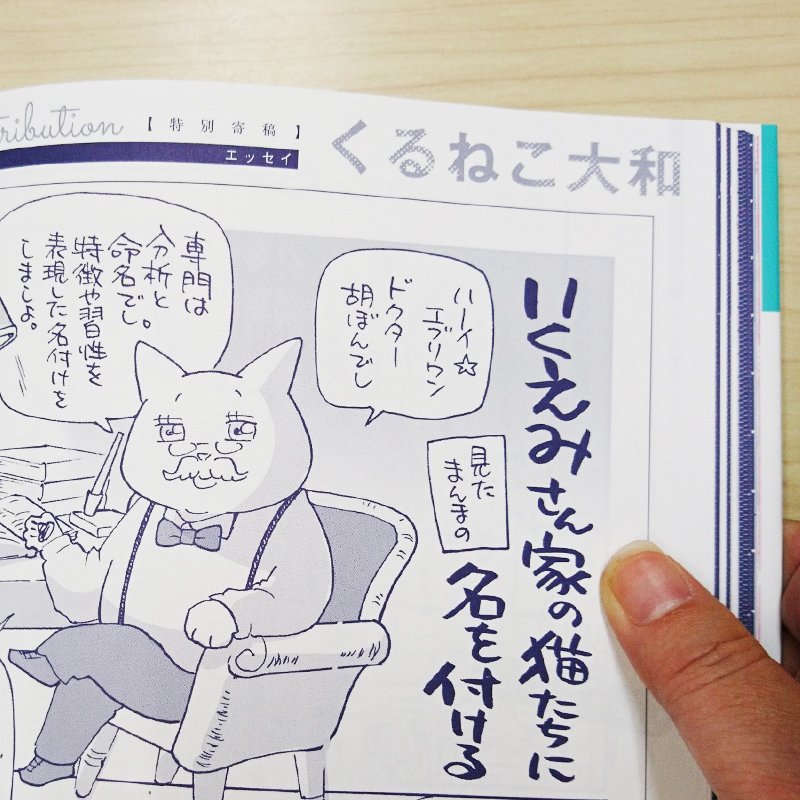 tribution
【特別寄稿】
エッセイ
くるねこ大和
いくえみさん家の猫たちに
見た
まんまの
名を付ける
ハーイ☆
エブリワン
ドクター
胡ぼんでし
専門は
分析と
命名でし。
特徴や習性を
表現した名付けを
しましょ。